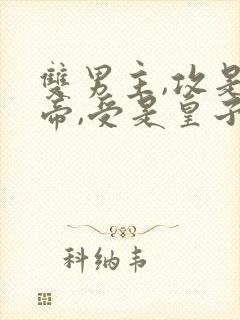 雙男主,攻是
帝,受是皇子
科纳韦